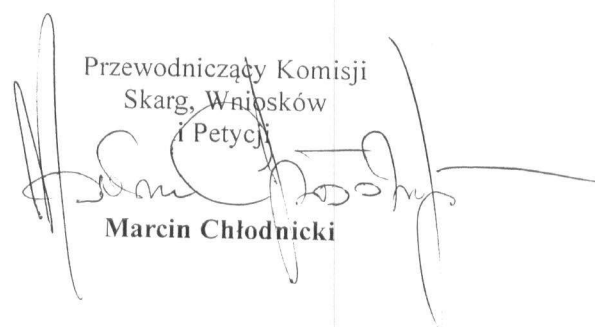 Przewodniczący Komisji
Skarg, Wniosków
i Petycji
Marcin Chłodnicki